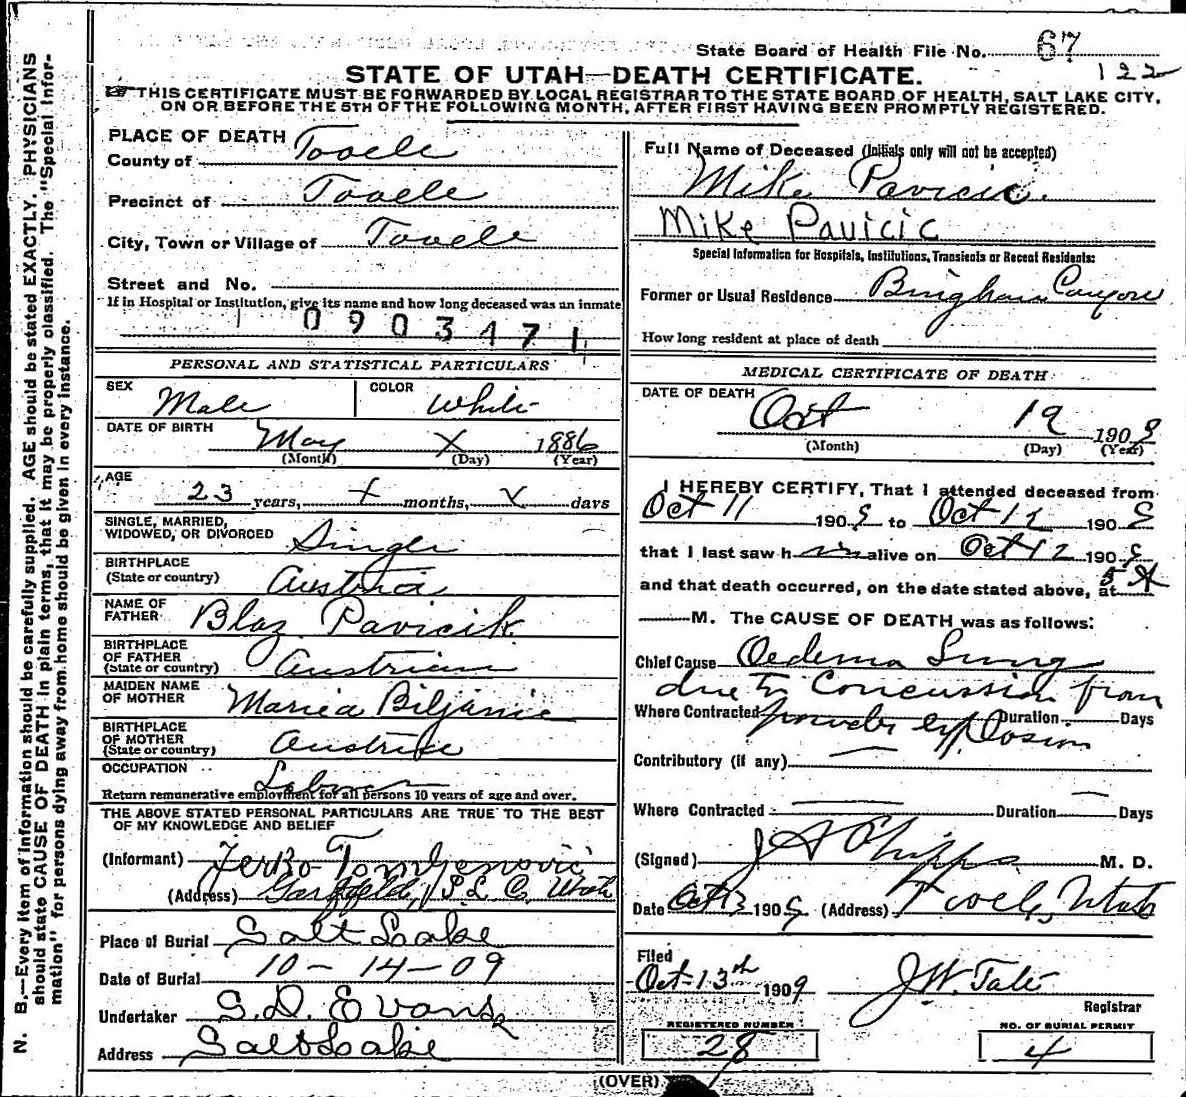 State Board of Health File No. 67
122
STATE OF UTAH—DEATH CERTIFICATE.
THIS CERTIFICATE MUST BE FORWARDED BY LOCAL REGISTRAR TO THE STATE BOARD OF HEALTH, SALT LAKE CITY,
ON OR BEFORE THE 5TH OF THE FOLLOWING MONTH, AFTER FIRST HAVING BEEN PROMPTLY REGISTERED.
N. B.—Every item of information should be carefully supplied. AGE should be stated EXACTLY. PHYSICIANS
should state CAUSE OF DEATH in plain terms, that it may be properly classified. The "Special Infor-
mation" for persons dying away from home should be given in every instance.
PLACE OF DEATH
County of Tooele
Precinct of Tooele
City, Town or Village of Tooele
Street and No.
If in Hospital or Institution, give its name and how long deceased was an inmate
0903471
PERSONAL AND STATISTICAL PARTICULARS
SEX Male COLOR White
DATE OF BIRTH May X 1886
(Month) (Day) (Year)
AGE 23 years, months, days
SINGLE, MARRIED,
WIDOWED, OR DIVORCED Single
BIRTHPLACE
(State or country) Austria
NAME OF
FATHER Blaz Pavicik
BIRTHPLACE
OF FATHER
(State or country) Austrian
MAIDEN NAME
OF MOTHER Marica Biljanic
BIRTHPLACE
OF MOTHER
(State or country) Austria
OCCUPATION Labor
Return remunerative employment for all persons 10 years of age and over.
THE ABOVE STATED PERSONAL PARTICULARS ARE TRUE TO THE BEST
OF MY KNOWLEDGE AND BELIEF
(Informant) Jerko Tomljenovic
(Address) Garfield, Utah
Place of Burial Salt Lake
Date of Burial 10-14-09
Undertaker S.D. Evans
Address Salt Lake
Full Name of Deceased (Initials only will not be accepted)
Mike Pavicic.
Mike Pavicic
Special Information for Hospitals, Institutions, Transients or Recent Residents:
Former or Usual Residence Bingham Canyon
How long resident at place of death
MEDICAL CERTIFICATE OF DEATH
DATE OF DEATH Oct 12 1909
(Month) (Day) (Year)
I HEREBY CERTIFY, That I attended deceased from
Oct 11 1909 to Oct 12 1909
that I last saw him alive on Oct 12 1909
and that death occurred, on the date stated above, at 5 A
M. The CAUSE OF DEATH was as follows:
Chief Cause Oedema Lung
due to Concussion from
Where Contracted powder explosion Duration Days
Contributory (if any)
Where Contracted Duration Days
(Signed) J A Phipps M. D.
Date Oct 13 1909 (Address) Tooele, Utah
Filed
Oct-13th 1909 J.W. Tate
Registrar
REGISTERED NUMBER NO. OF BURIAL PERMIT
28 4
(OVER)